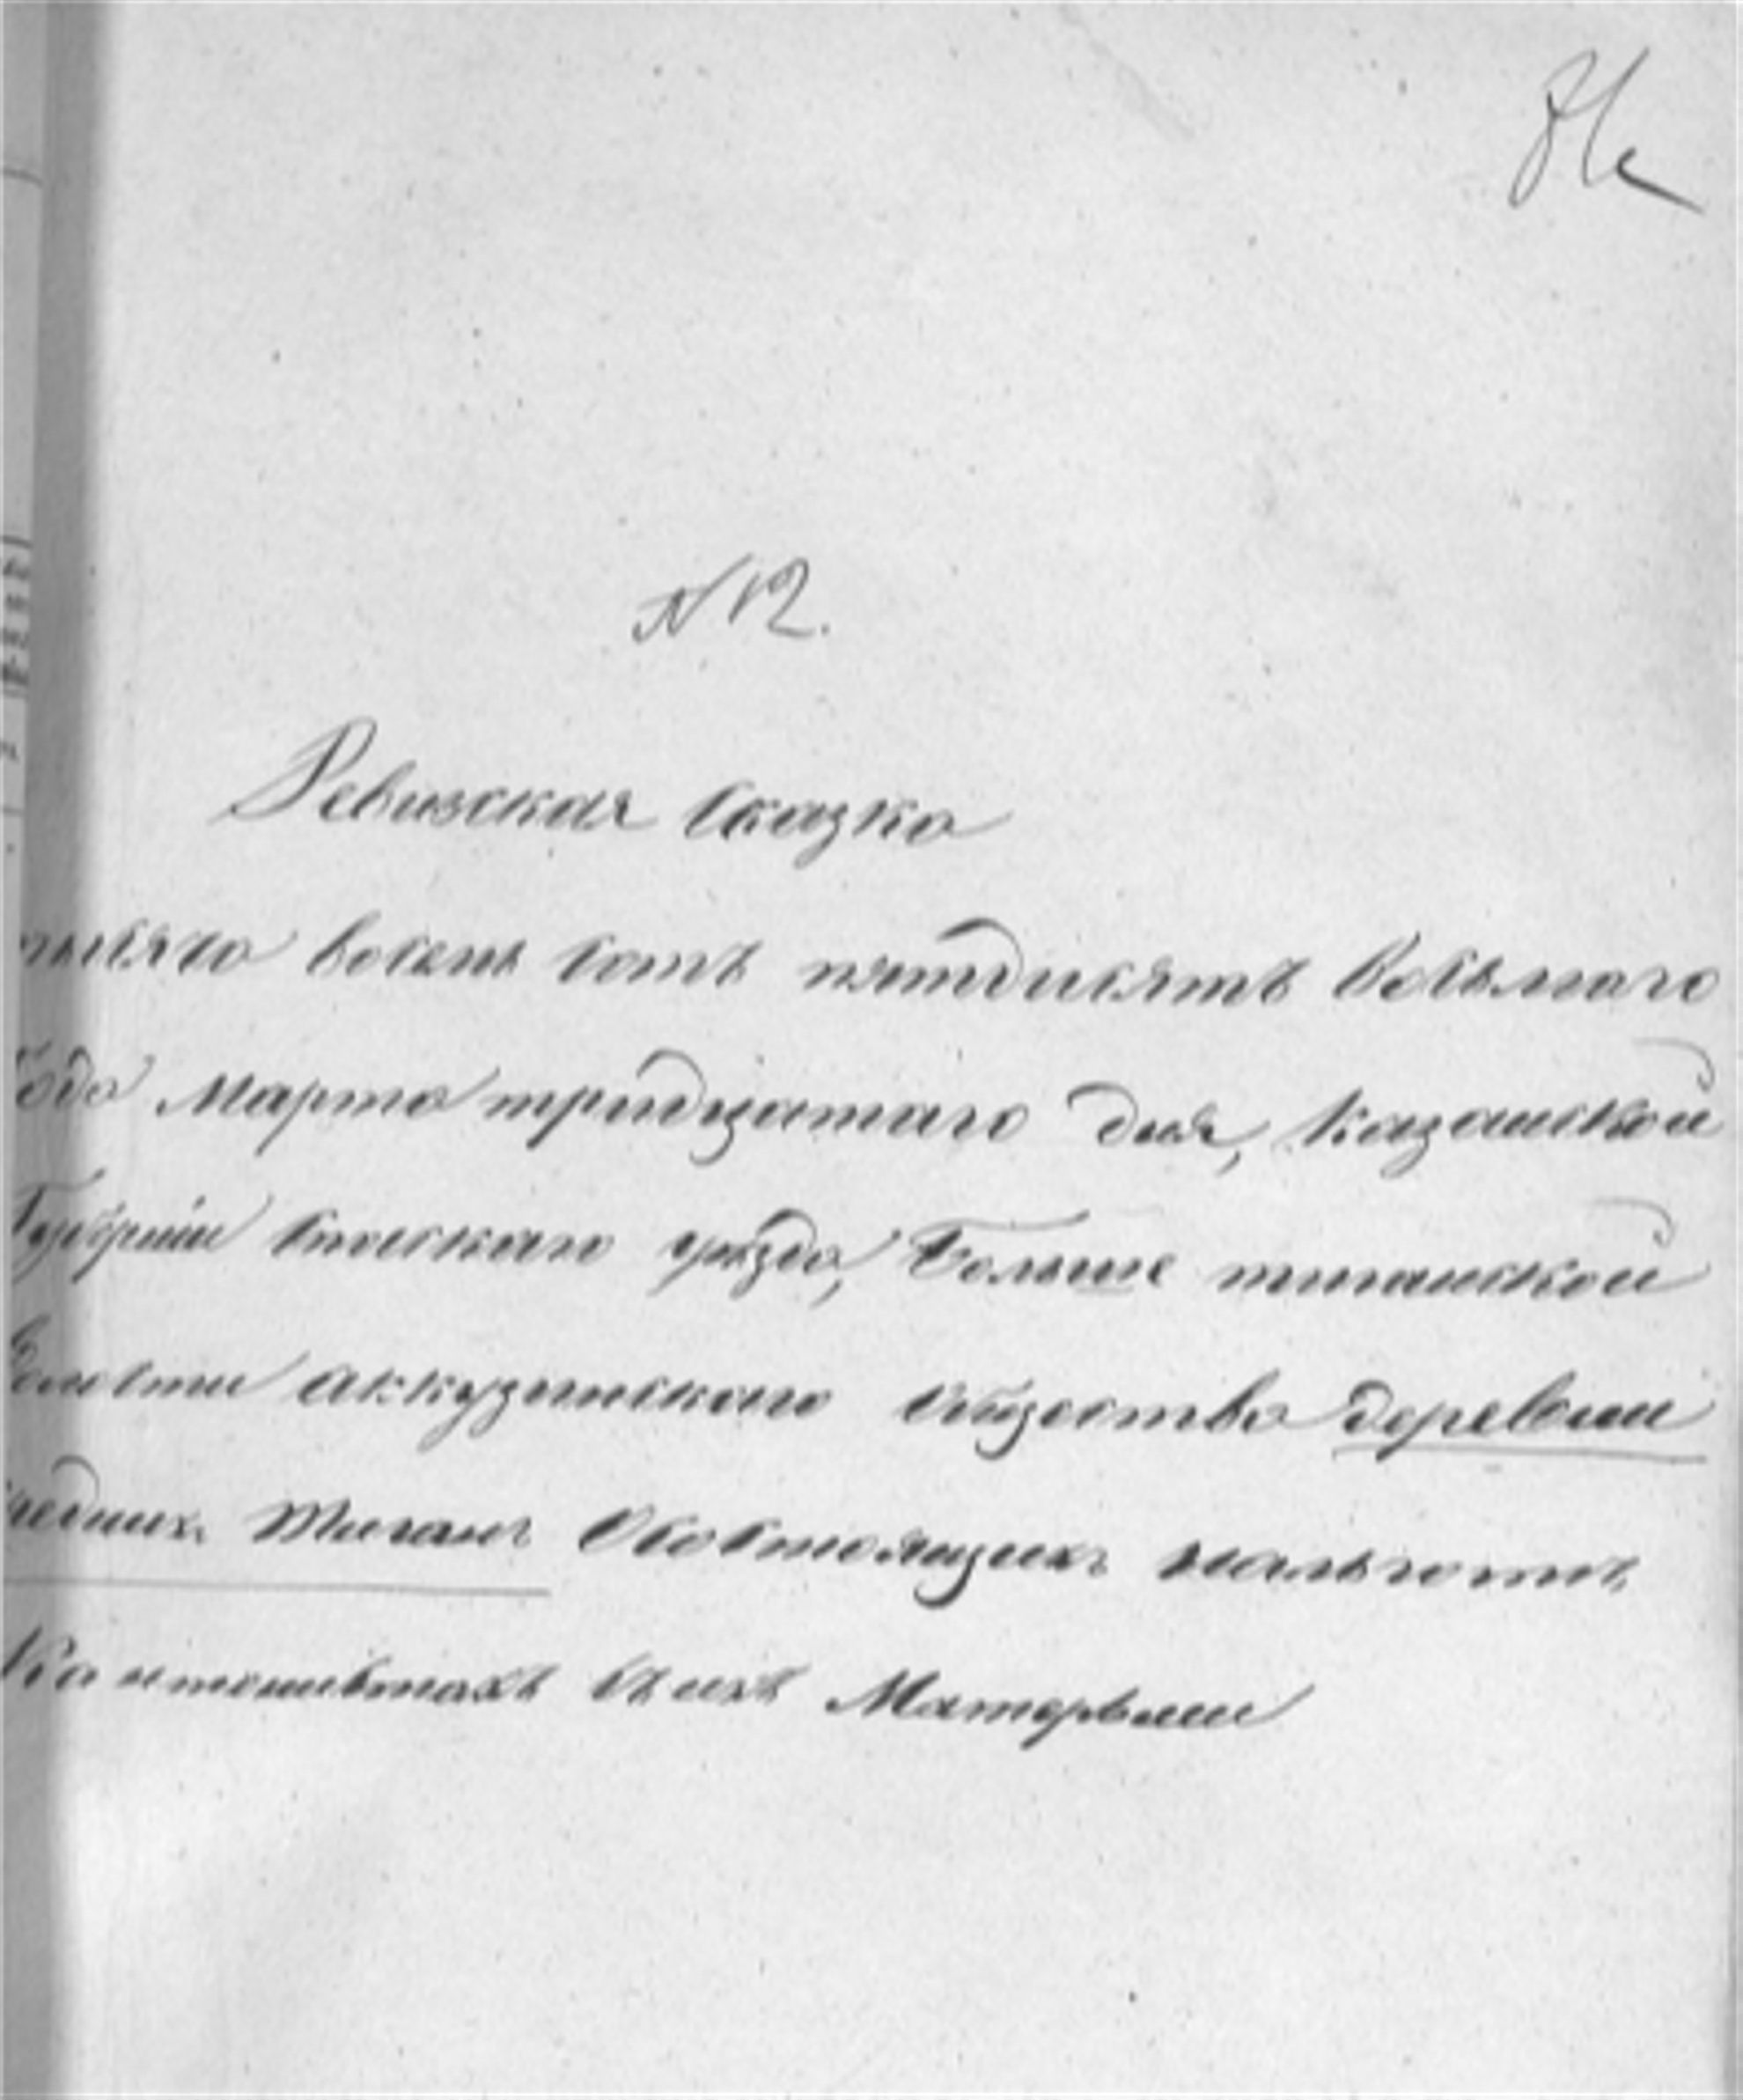 N 12.
Ревизская Сказка
тысяча восемь сотъ пятдисятъ восьмаго
Года Марта тридцатаго дня, Казанской
Губерніи Спаскаго уезда, Больше тиганской
Волости аккузинскаго общества деревни
Средних Тиган Обостоящихъ нальготе
Кантонистахъ съ ихъ Матерьми